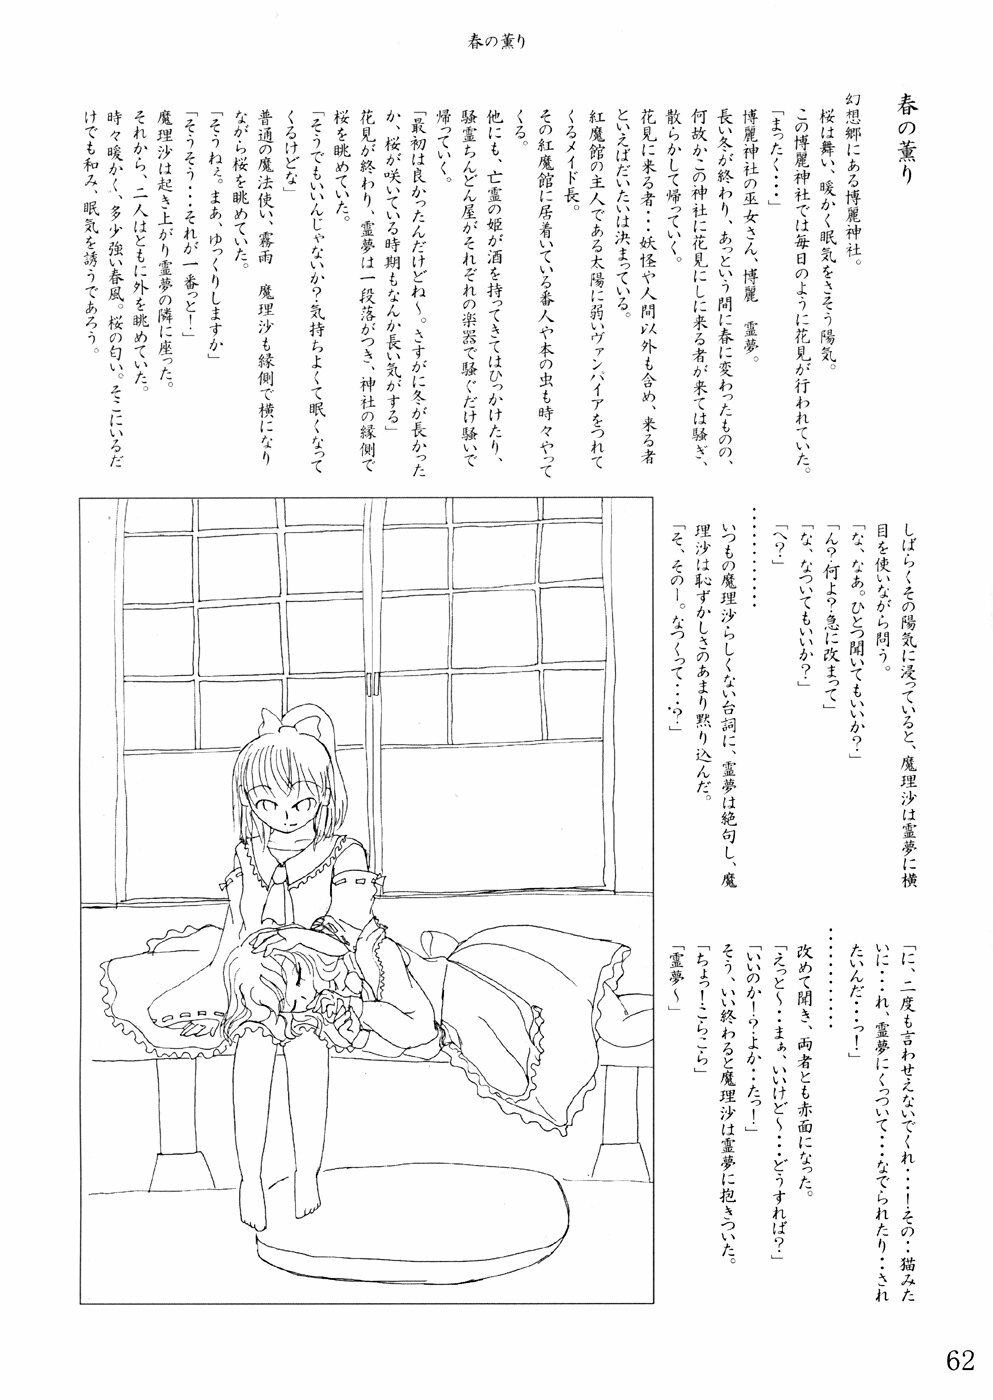 春の薫り
春の薫り
幻想郷にある博麗神社。
桜は舞い、暖かく眠気をさそう陽気。
この博麗神社では毎日のように花見が行われていた。
「まったく・・・」
博麗神社の巫女さん、博麗　霊夢。
長い冬が終わり、あっという間に春に変わったものの、
何故かこの神社に花見にしに来る者が来ては騒ぎ、
散らかして帰っていく。
花見に来る者・・・妖怪や人間以外も含め、来る者
といえばだいたいは決まっている。
紅魔館の主人である太陽に弱いヴァンパイアをつれて
くるメイド長。
その紅魔館に居着いている番人や本の虫も時々やって
くる。
他にも、亡霊の姫が酒を持ってきてはひっかけたり、
騒霊ちんどん屋がそれぞれの楽器で騒ぐだけ騒いで
帰っていく。
「最初は良かったんだけどね〜。さすがに冬が長かった
か、桜が咲いている時期もなんか長い気がする」
花見が終わり、霊夢は一段落がつき、神社の縁側で
桜を眺めていた。
「そうでもいいんじゃないか？気持ちよくて眠くなって
くるけどな」
普通の魔法使い、霧雨　魔理沙も縁側で横になり
ながら桜を眺めていた。
「そうねぇ。まあ、ゆっくりしますか」
「そうそう・・・それが一番っと！」
魔理沙は起き上がり霊夢の隣に座った。
それから、二人はともに外を眺めていた。
時々暖かく、多少強い春風。桜の匂い。そこにいるだ
けでも和み、眠気を誘うであろう。
しばらくその陽気に浸っていると、魔理沙は霊夢に横
目を使いながら問う。
「な、なあ。ひとつ聞いてもいいか？」
「ん？何よ？急に改まって」
「な、なついてもいいか？」
「へ？」
・・・・・・・・・・
いつもの魔理沙らしくない台詞に、霊夢は絶句し、魔
理沙は恥ずかしさのあまり黙り込んだ。
「そ、そのー。なつくって・・・？」
「に、二度も言わせえないでくれ・・・！その・・猫みた
いに・・・れ、霊夢にくっついて・・・なでられたり・・され
たいんだ・・・っ！」
・・・・・・・・・・
改めて聞き、両者とも赤面になった。
「えっと〜・・・まぁ、いいけど〜・・・どうすれば？」
「いいのか！？よか・・たっ！」
そう、いい終わると魔理沙は霊夢に抱きついた。
「ちょっ！こらこら」
「霊夢〜」
62